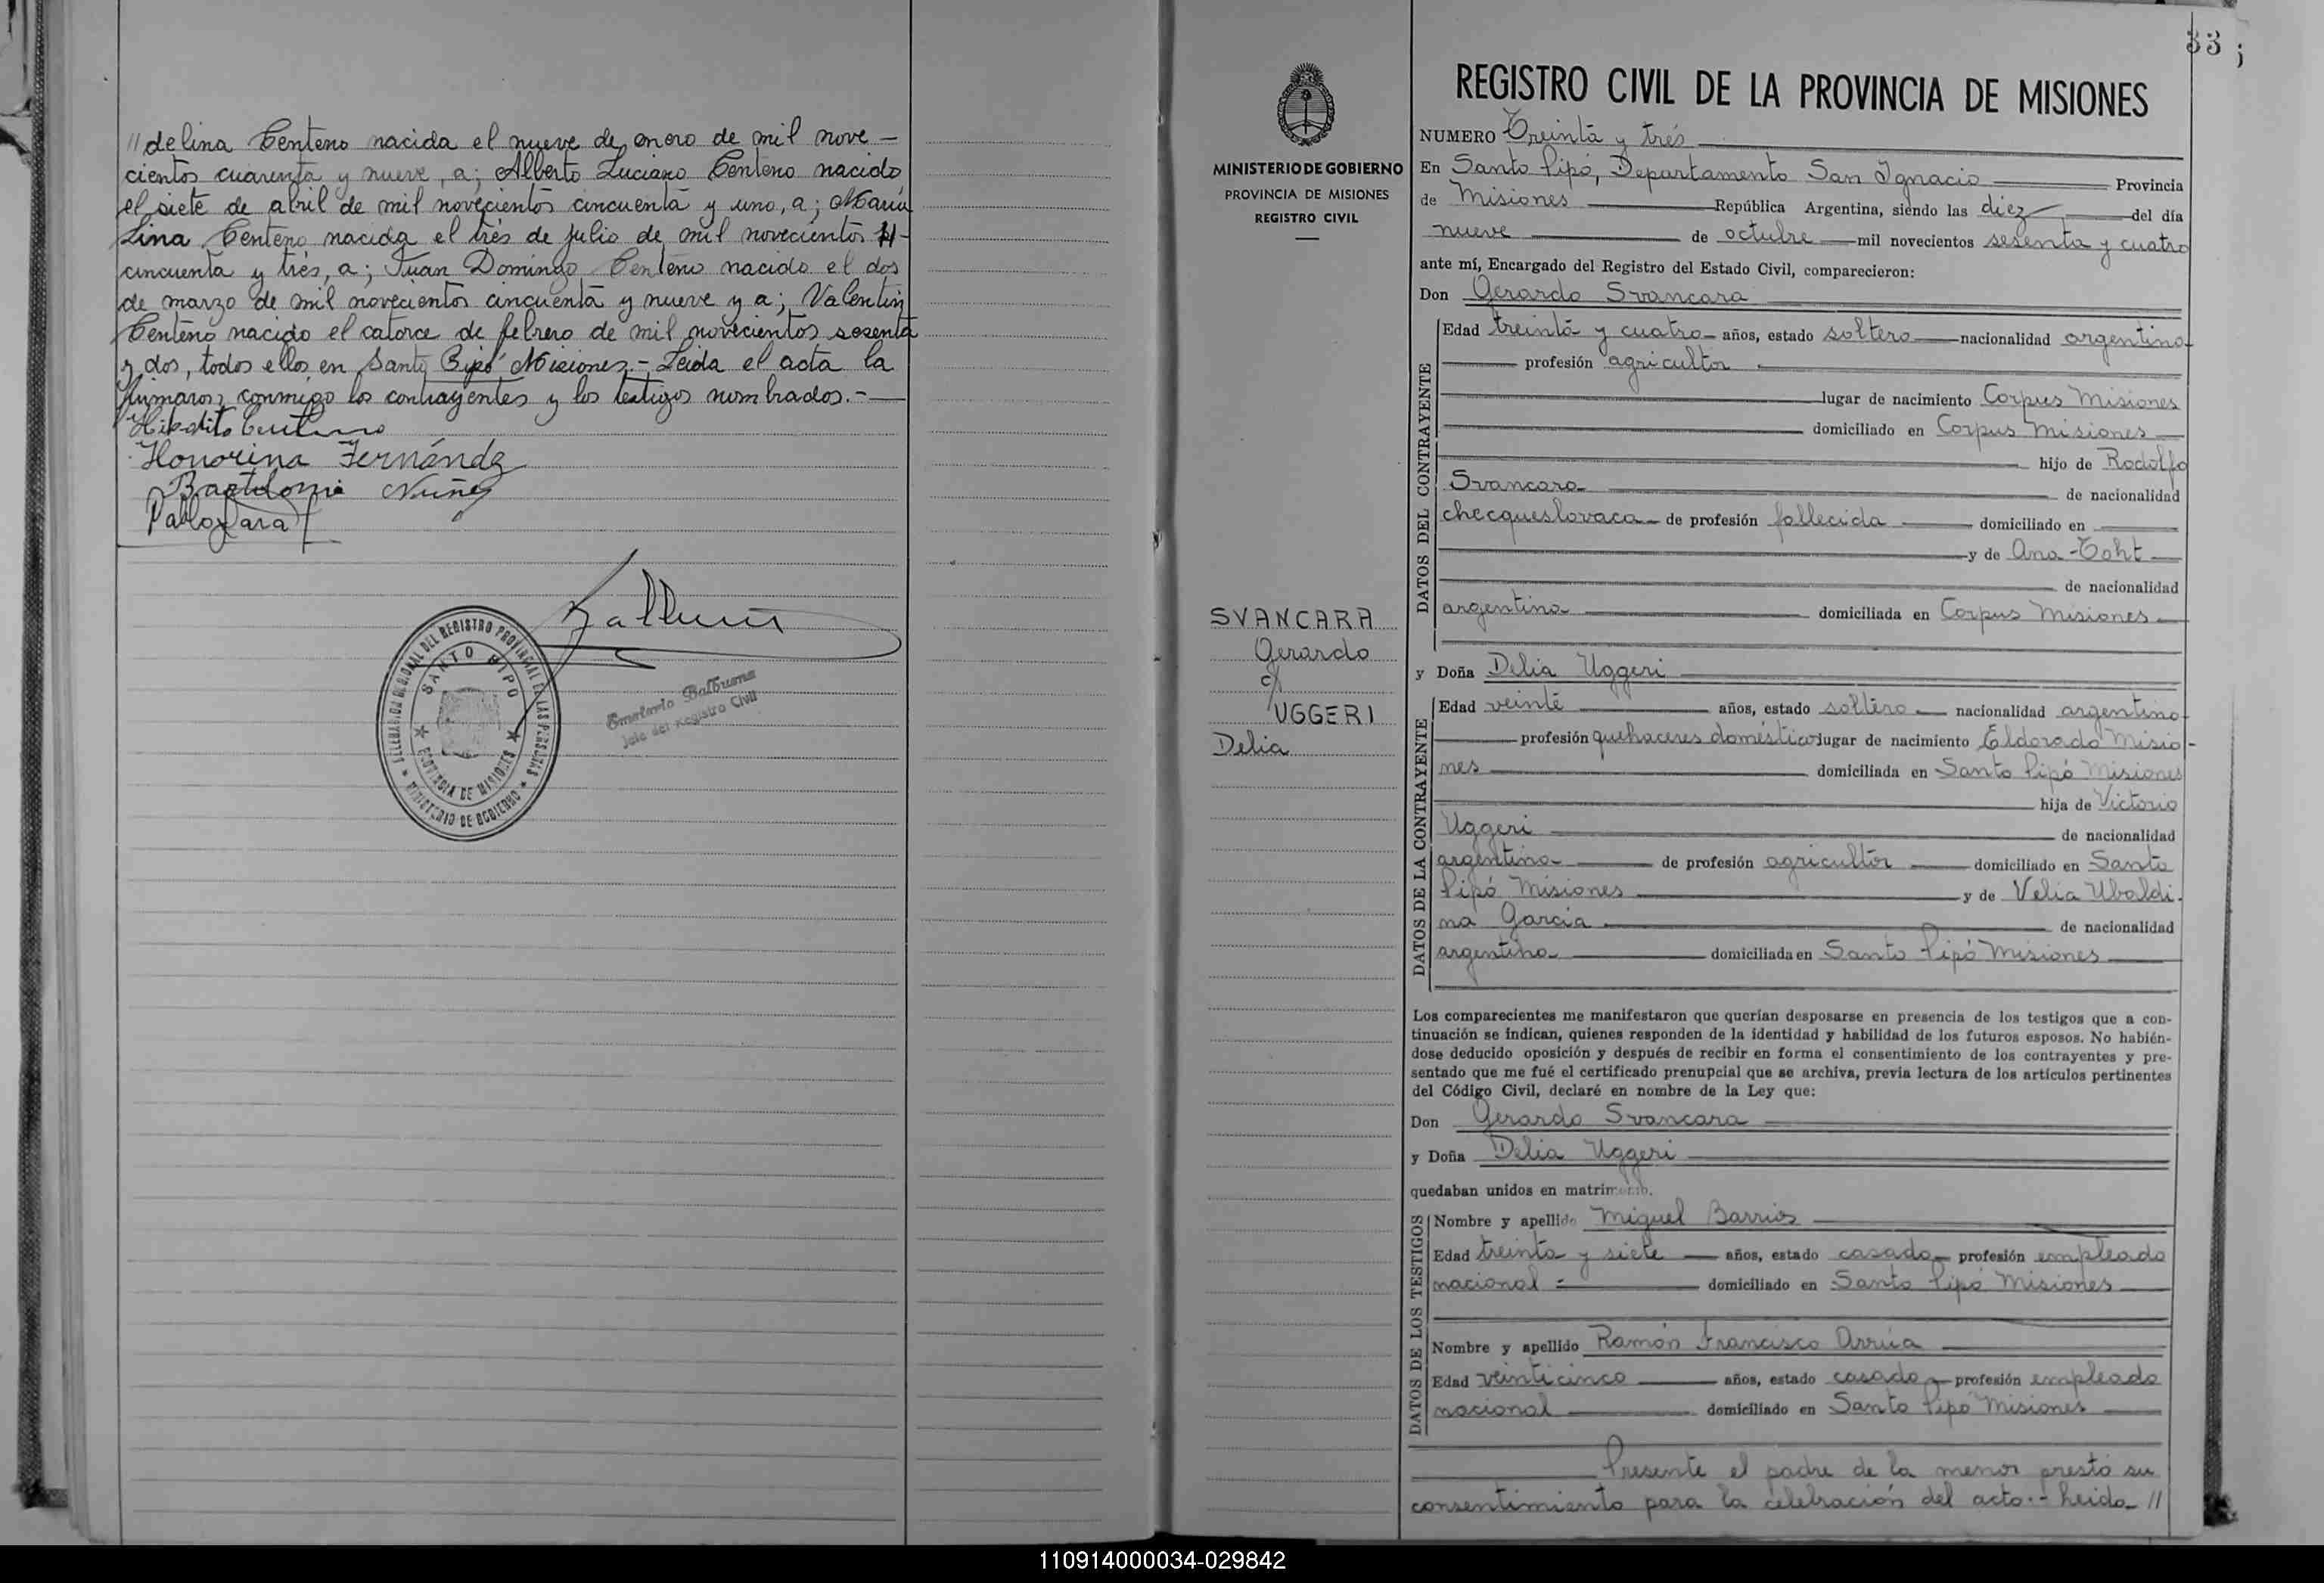 //delina Centeno nacida el nueve de enero de mil nove-
cientos cuarenta y nueve, a; Alberto Luciano Centeno nacido
el siete de abril de mil novecientos cincuenta y uno, a; María
Lina Centeno nacida el trés de julio de mil novecientos
cincuenta y trés, a; Juan Domingo Centeno nacido el dos
de marzo de mil novecientos cincuenta y nueve y a; Valentin
Centeno nacido el catorce de febrero de mil novecientos sesenta
y dos, todos ellos en Santo Pipó Misiones.- Leida el acta la
firmaron conmigo los contrayentes y los testigos nombrados.-
Hipolito Centeno
Honorina Fernández
Bartolomé Nuñez
Pablo Jara
DELEGACION REGIONAL DEL REGISTRO PROVINCIAL DE LAS PERSONAS
SANTO PIPO
PROVINCIA DE MISIONES
MINISTERIO DE GOBIERNO
Balbuena
Jefe del Registro Civil
MINISTERIO DE GOBIERNO
PROVINCIA DE MISIONES
REGISTRO CIVIL
SVANCARA
Gerardo
c/
UGGERI
Delia
33
REGISTRO CIVIL DE LA PROVINCIA DE MISIONES
NUMERO Treinta y trés
En Santo Pipó, Departamento San Ignacio Provincia
de Misiones República Argentina, siendo las diez del día
nueve de octubre mil novecientos sesenta y cuatro
ante mí, Encargado del Registro del Estado Civil, comparecieron:
Don Gerardo Svancara
DATOS DEL CONTRAYENTE
Edad treinta y cuatro años, estado soltero nacionalidad argentina
profesión agricultor
lugar de nacimiento Corpus Misiones
domiciliado en Corpus Misiones
hijo de Rodolfo
Svancara de nacionalidad
checqueslovaca de profesión fallecida domiciliado en
y de Ana Toht
de nacionalidad
argentina domiciliada en Corpus Misiones
y Doña Delia Uggeri
DATOS DE LA CONTRAYENTE
Edad veinte años, estado soltera nacionalidad argentina
profesión quehaceres domésticos lugar de nacimiento Eldorado Misio-
nes domiciliada en Santo Pipó Misiones
hija de Victorio
Uggeri de nacionalidad
argentina de profesión agricultor domiciliado en Santo
Pipó Misiones y de Velia Ubaldi-
na Garcia de nacionalidad
argentina domiciliada en Santo Pipó Misiones
Los comparecientes me manifestaron que querían desposarse en presencia de los testigos que a con-
tinuación se indican, quienes responden de la identidad y habilidad de los futuros esposos. No habién-
dose deducido oposición y después de recibir en forma el consentimiento de los contrayentes y pre-
sentado que me fué el certificado prenupcial que se archiva, previa lectura de los artículos pertinentes
del Código Civil, declaré en nombre de la Ley que:
Don Gerardo Svancara
y Doña Delia Uggeri
quedaban unidos en matrimonio.
DATOS DE LOS TESTIGOS
Nombre y apellido Miguel Barrios
Edad treinta y siete años, estado casado profesión empleado
nacional domiciliado en Santo Pipó Misiones
Nombre y apellido Ramón Francisco Arrúa
Edad veinticinco años, estado casado profesión empleado
nacional domiciliado en Santo Pipó Misiones
Presente el padre de la menor prestó su
consentimiento para la celebración del acto.- Leida //
110914000034-029842